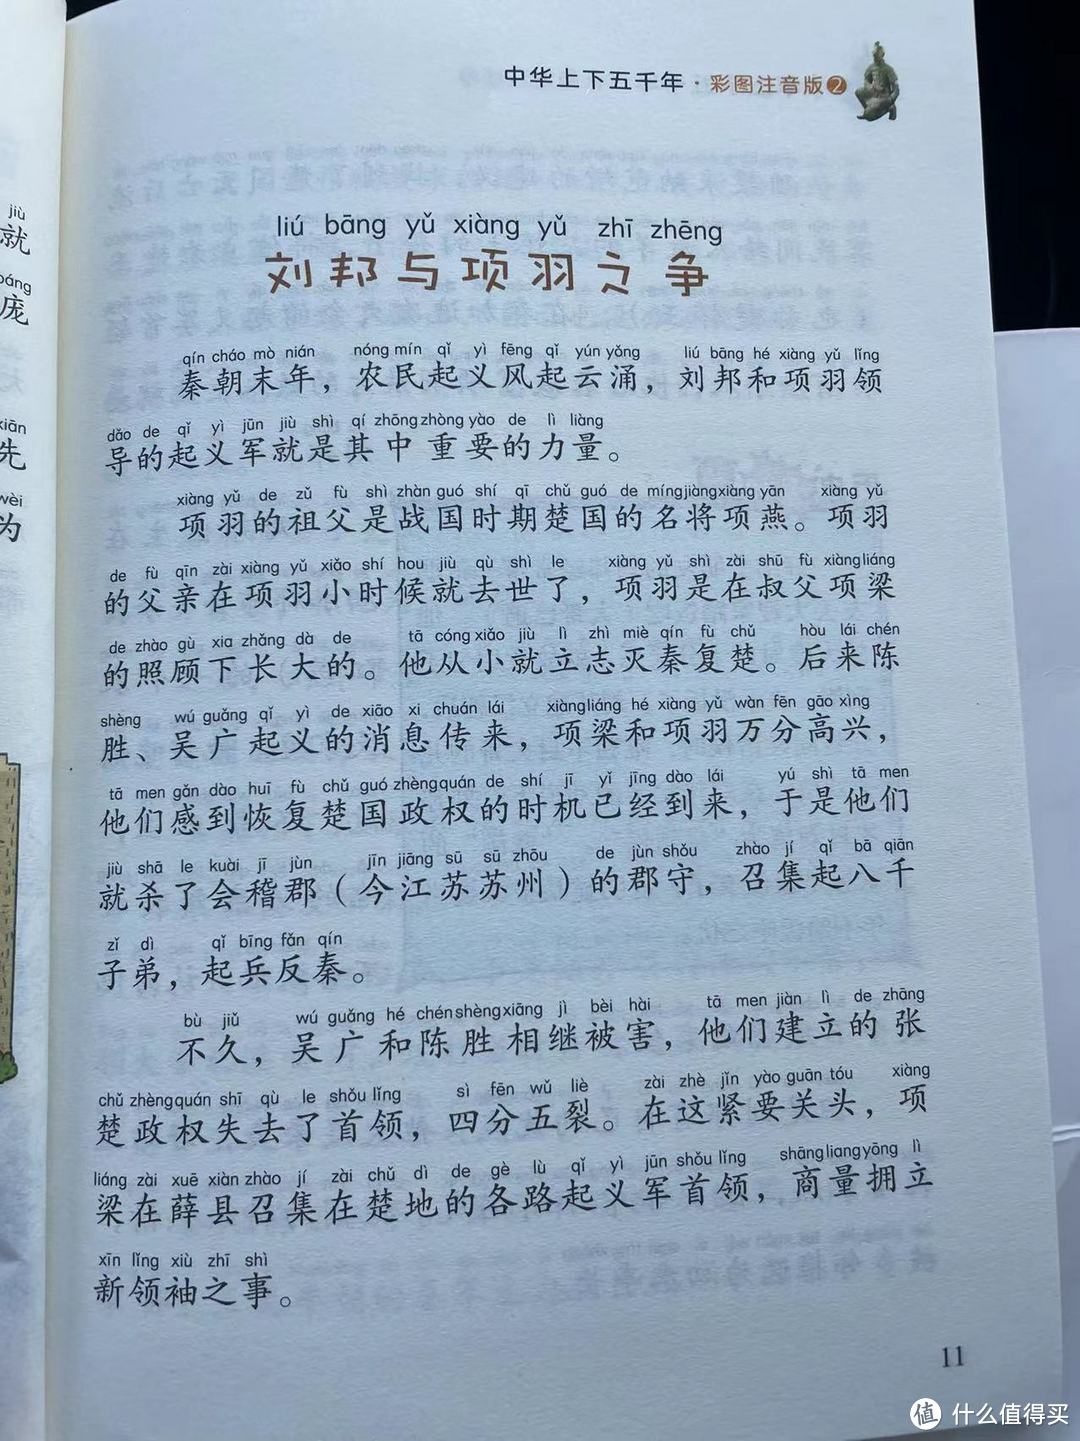 中华上下五千年·彩图注音版❷
liú bāng yǔ xiàng yǔ zhī zhēng
刘邦与项羽之争
qín cháo mò nián nóng mín qǐ yì fēng qǐ yún yǒng liú bāng hé xiàng yǔ lǐng
秦朝末年，农民起义风起云涌，刘邦和项羽领
dǎo de qǐ yì jūn jiù shì qí zhōng zhòng yào de lì liàng
导的起义军就是其中重要的力量。
xiàng yǔ de zǔ fù shì zhàn guó shí qī chǔ guó de míng jiàng xiàng yān xiàng yǔ
项羽的祖父是战国时期楚国的名将项燕。项羽
de fù qīn zài xiàng yǔ xiǎo shí hou jiù qù shì le xiàng yǔ shì zài shū fù xiàng liáng
的父亲在项羽小时候就去世了，项羽是在叔父项梁
de zhào gù xia zhǎng dà de tā cóng xiǎo jiù lì zhì miè qín fù chǔ hòu lái chén
的照顾下长大的。他从小就立志灭秦复楚。后来陈
shèng wú guǎng qǐ yì de xiāo xi chuán lái xiàng liáng hé xiàng yǔ wàn fēn gāo xìng
胜、吴广起义的消息传来，项梁和项羽万分高兴，
tā men gǎn dào huī fù chǔ guó zhèng quán de shí jī yǐ jīng dào lái yú shì tā men
他们感到恢复楚国政权的时机已经到来，于是他们
jiù shā le kuài jī jùn jīn jiāng sū sū zhōu de jùn shǒu zhào jí qǐ bā qiān
就杀了会稽郡（今江苏苏州）的郡守，召集起八千
zǐ dì qǐ bīng fǎn qín
子弟，起兵反秦。
bù jiǔ wú guǎng hé chén shèng xiāng jì bèi hài tā men jiàn lì de zhāng
不久，吴广和陈胜相继被害，他们建立的张
chǔ zhèng quán shī qù le shǒu lǐng sì fēn wǔ liè zài zhè jǐn yào guān tóu xiàng
楚政权失去了首领，四分五裂。在这紧要关头，项
liáng zài xuē xiàn zhào jí zài chǔ dì de gè lù qǐ yì jūn shǒu lǐng shāng liang yōng lì
梁在薛县召集在楚地的各路起义军首领，商量拥立
xīn lǐng xiù zhī shì
新领袖之事。
11
jiù
就
páng
庞
xiān
先
wèi
为
值 什么值得买